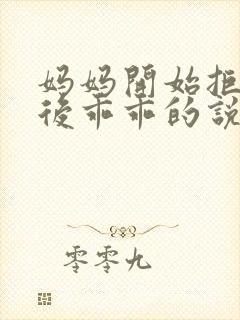 妈妈開始拒
後乖乖的說
零零九